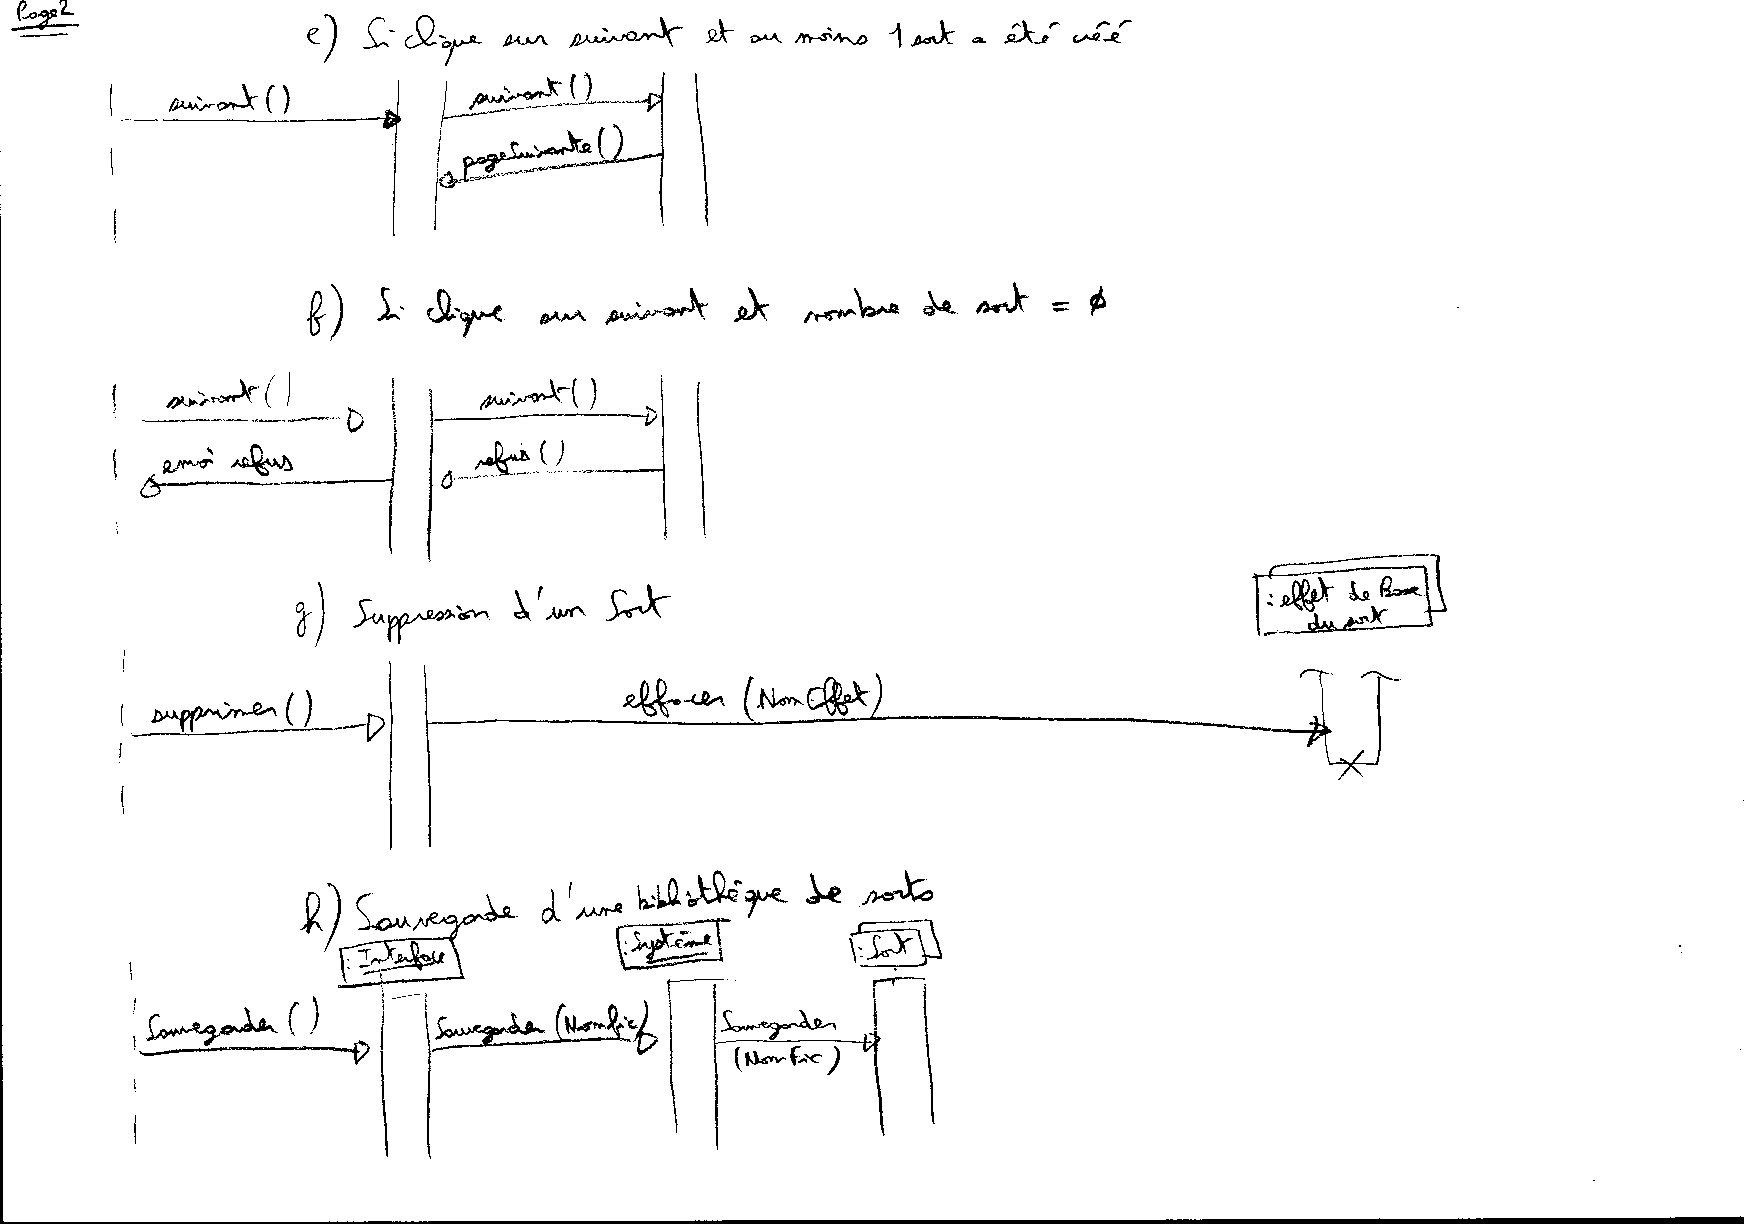 Page 2
e) Si clique sur suivant et au moins 1 sort a été créé
suivant()
suivant()
pageSuivante()
f) Si clique sur suivant et nombre de sort = ø
suivant()
suivant()
envoi refus
refus()
g) Suppression d'un Sort
: effet de Base
du sort
supprimer()
effacer (NomEffet)
h) Sauvegarde d'une bibliothèque de sorts
: Interface
: Système
: Sort
Sauvegarder()
Sauvegarder (Nomfic)
Sauvegarder
(NomFic)